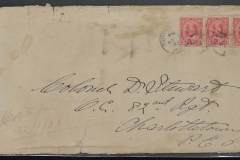 Colonel D Stewart
O.C. 82nd Regt
Charlottetown
P.E.I.